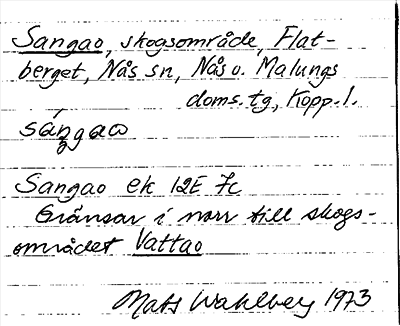 Sangao, skogsområde, Flat-
berget, Nås sn, Nås o. Malungs
doms. tg, Kopp. l.
Sangao ek 12E 7c
Gränsar i norr till skogs-
området Vattao
Mats Wahlberg 1973